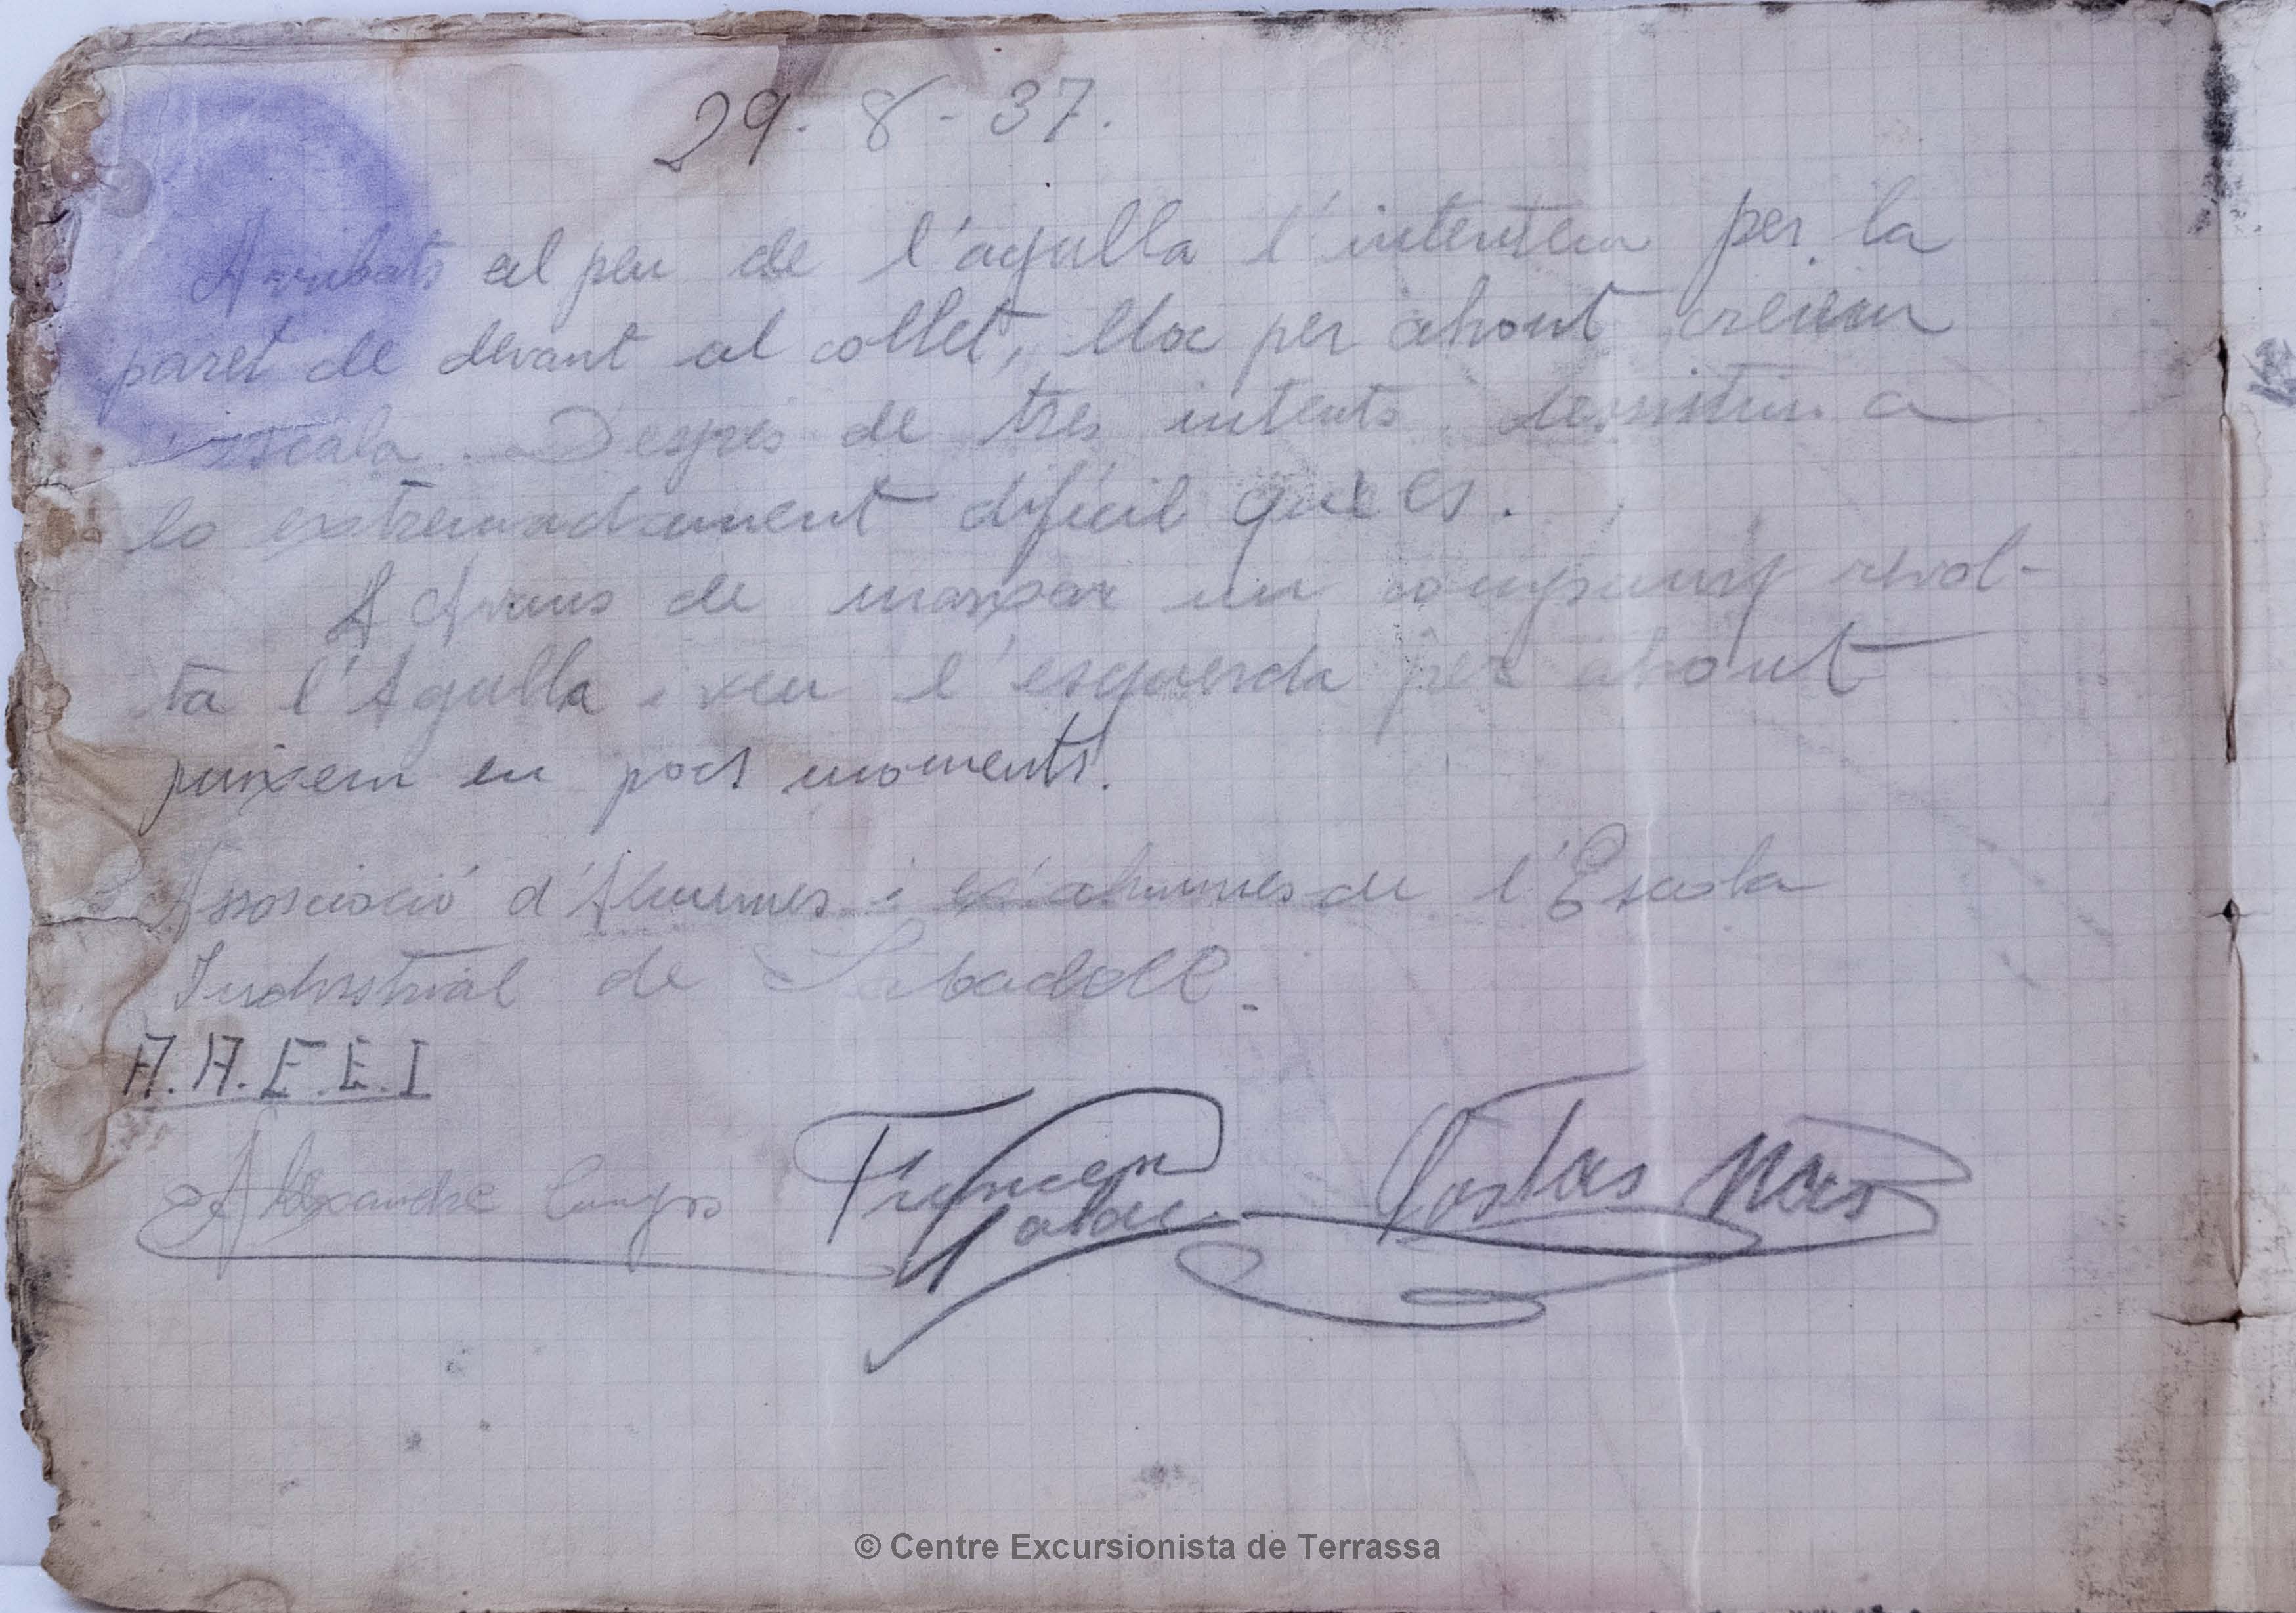 29-8-37.
Arribats al peu de l'agulla l'intentem per la
paret de devant al collet, lloc per ahont creiem
escala. Despres de tres intents desistim a
lo extremadament dificil que es.
Avans de marxar un company revol-
ta l'Agulla i veu l'esquerda per ahont
puixem en pocs moments.
Associació d'Alumnes i ex'alumnes de l'Escola
Industrial de Sabadell.
A.A.E.E.I
Alexandre Francesc Costas Mas
© Centre Excursionista de Terrassa